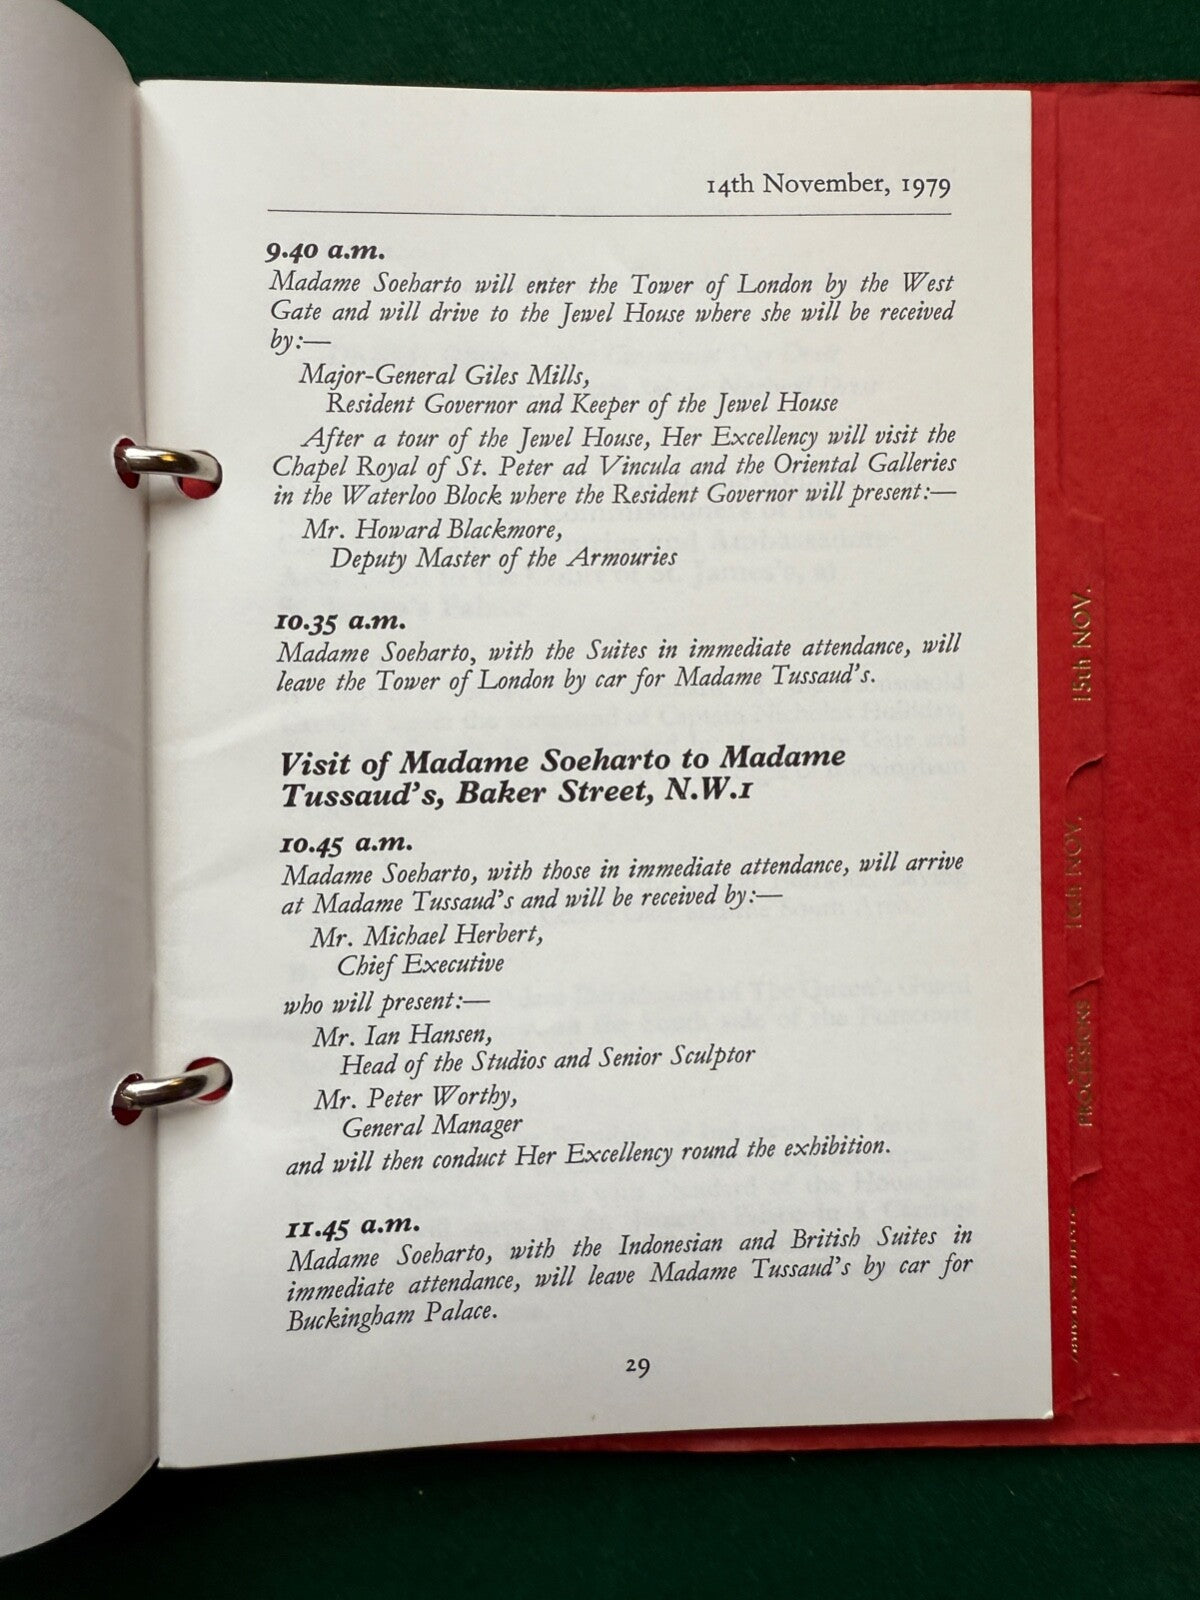 14th November, 1979
9.40 a.m.
Madame Soeharto will enter the Tower of London by the West
Gate and will drive to the Jewel House where she will be received
by:—
Major-General Giles Mills,
Resident Governor and Keeper of the Jewel House
After a tour of the Jewel House, Her Excellency will visit the
Chapel Royal of St. Peter ad Vincula and the Oriental Galleries
in the Waterloo Block where the Resident Governor will present:—
Mr. Howard Blackmore,
Deputy Master of the Armouries
10.35 a.m.
Madame Soeharto, with the Suites in immediate attendance, will
leave the Tower of London by car for Madame Tussaud's.
Visit of Madame Soeharto to Madame
Tussaud's, Baker Street, N.W.1
10.45 a.m.
Madame Soeharto, with those in immediate attendance, will arrive
at Madame Tussaud's and will be received by:—
Mr. Michael Herbert,
Chief Executive
who will present:—
Mr. Ian Hansen,
Head of the Studios and Senior Sculptor
Mr. Peter Worthy,
General Manager
and will then conduct Her Excellency round the exhibition.
11.45 a.m.
Madame Soeharto, with the Indonesian and British Suites in
immediate attendance, will leave Madame Tussaud's by car for
Buckingham Palace.
29
15th NOV.
16th NOV.
PROCESSIONS